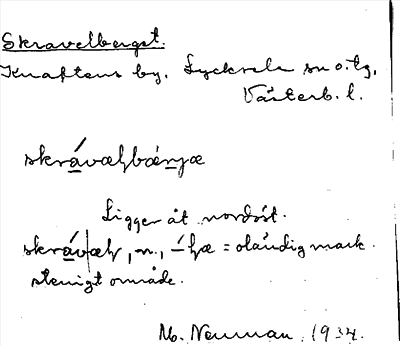 Skravelberget.
Knaftens by, Lycksele sn o. tg,
Västerb. l.
skrávæḷbærjæ
Ligger åt nordost.
skrávæḷ, n., -ḷæ = oländig mark.
stenigt område.
M. Neuman, 1934.